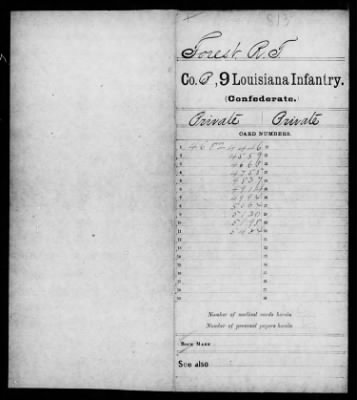 813
Forest R. T.
Co. B, 9 Louisiana Infantry.
(Confederate.)
Private Private
CARD NUMBERS.
1 46824446
2 4559
3 4660
4 4755
5 4837
6 4914
7 4994
8
9 5120
10 5198
11 5424
12
13
14
15
Number of medical cards herein
Number of personal papers herein
BOOK MARK:
See also